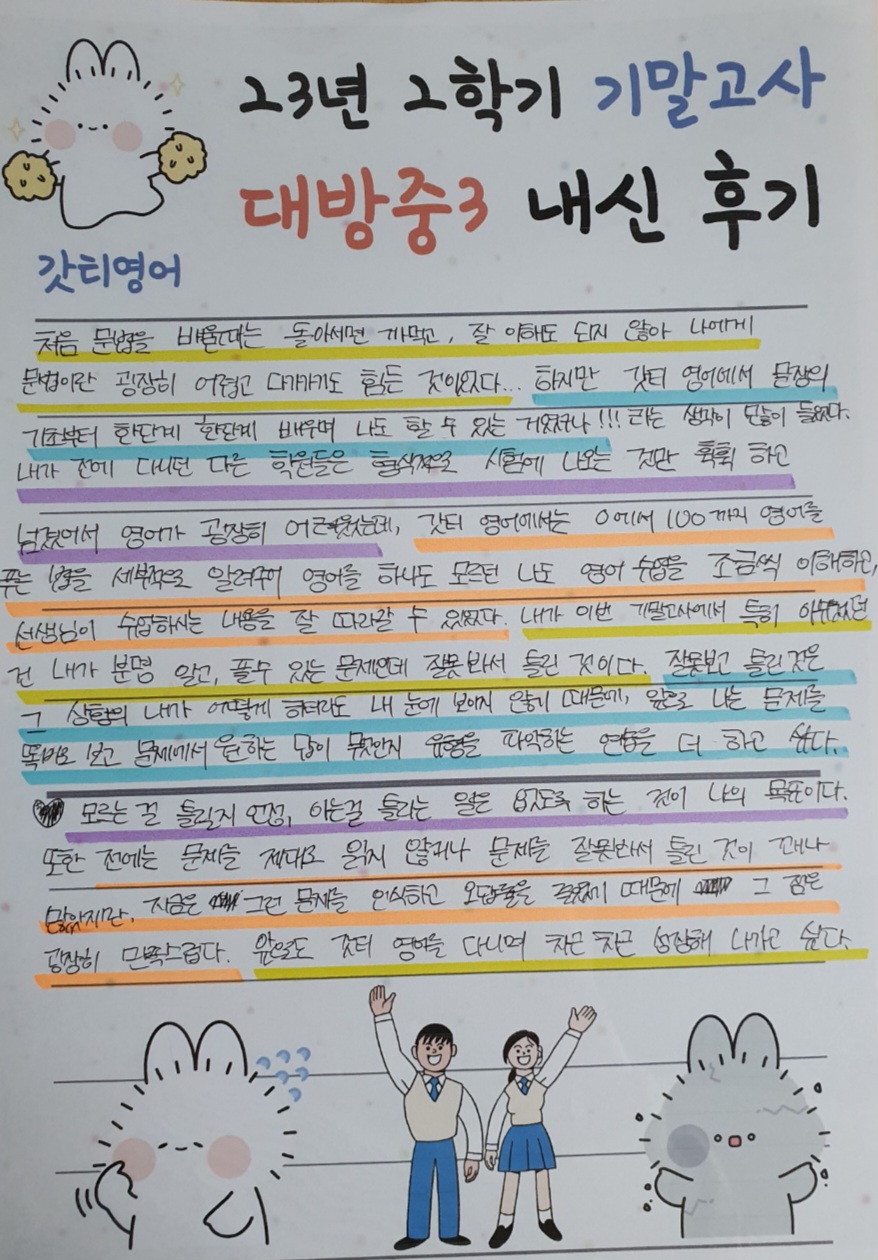 23년 2학기 기말고사
대방중3 내신 후기
갓티영어
처음 문법을 배울때는 돌아서면 까먹고, 잘 이해도 되지 않아 나에게
문법이란 굉장히 어렵고 다가가기도 힘든 것이였다... 하지만 갓티 영어에서 문장의
기초부터 한단계 한단계 배우며 나도 할 수 있는 거였구나!!! 라는 생각이 많이 들었다.
내가 전에 다니던 다른 학원들은 형식적으로 시험에 나오는 것만 휙휙 하고
넘겼어서 영어가 굉장히 어려웠는데, 갓티 영어에서는 0에서 100까지 영어를
푸는 법을 세부적으로 알려주어 영어를 하나도 모르던 나도 영어 수업을 조금씩 이해하고,
선생님이 수업하시는 내용을 잘 따라갈 수 있었다. 내가 이번 기말고사에서 특히 아쉬웠던
건 내가 분명 알고, 풀수 있는 문제인데 잘못 봐서 틀린 것이다. 잘못보고 틀린 것은
그 상황의 내가 어떻게 하더라도 내 눈에 보이지 않기 때문에, 앞으로 나는 문제를
똑바로 보고 문제에서 원하는 답이 무엇인지 유형을 파악하는 연습을 더 하고 싶다.
모르는 걸 틀릴지 언정, 아는걸 틀리는 일은 없도록 하는 것이 나의 목표이다.
또한 전에는 문제를 제대로 읽지 않거나 문제를 잘못봐서 틀린 것이 꽤나
많았지만, 지금은 그런 문제를 인식하고 오답률을 줄였기 때문에 그 점은
굉장히 만족스럽다. 앞으로도 갓티 영어를 다니며 차근 차근 성장해 나가고 싶다.